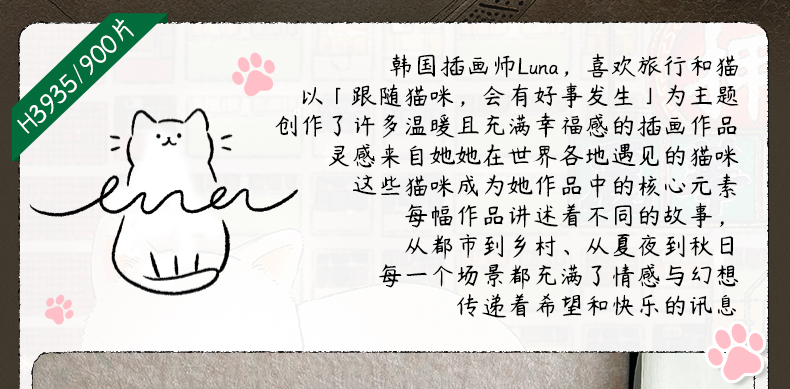 H3935/900片
韩国插画师Luna，喜欢旅行和猫
以「跟随猫咪，会有好事发生」为主题
创作了许多温暖且充满幸福感的插画作品
灵感来自她她在世界各地遇见的猫咪
这些猫咪成为她作品中的核心元素
每幅作品讲述着不同的故事，
从都市到乡村、从夏夜到秋日
每一个场景都充满了情感与幻想
传递着希望和快乐的讯息